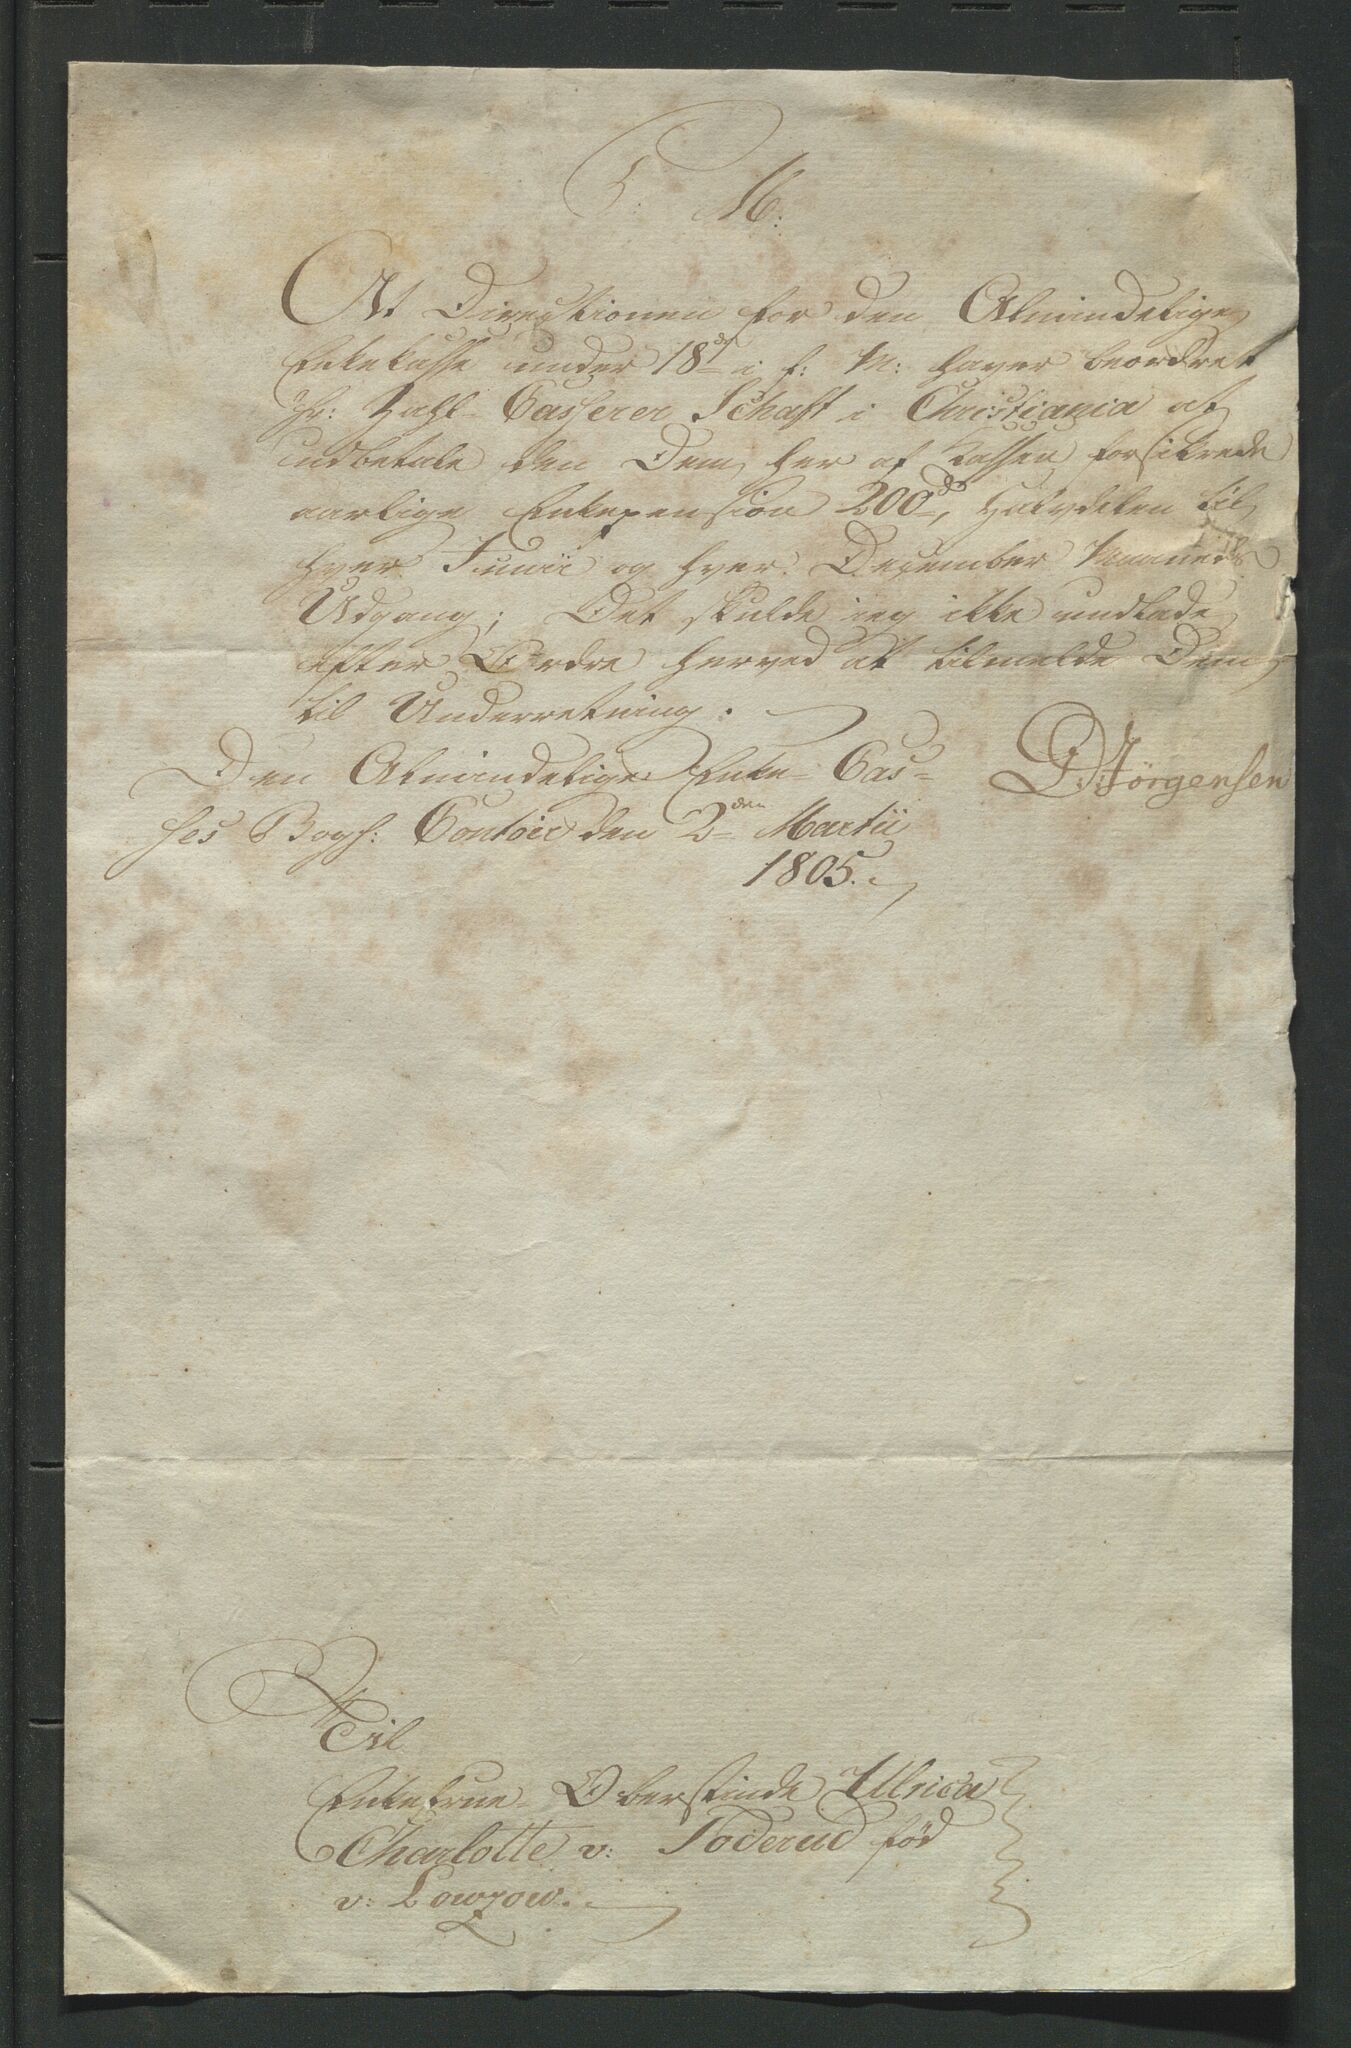 P. M.
At Directionen for den Almindelige
Enkekasse under 18de i f: M: haver beordret
Hr: Zahl-Casserer Schaft i Christiania at
udbetale den Dem her af Kassen forsikrede
aarlige Enkepension 200 rd, Halvdelen til
hver Junii og hver December Maaneds
Udgang; Det skulde ieg ikke undlade
efter Ordre herved at tilmelde Dem
til Underretning.
Den Almindelige Enke-Cas-
ses Bogh: Contoir den 2den Martii
1805.
D. Jörgensen
Til
Enkefrue Oberstinde Ulrica
Charlotte v: Toderud fød
v: Lowzow.